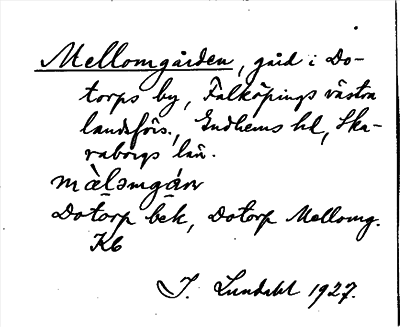 Mellomgården, gård i Do-
torps by, Falköpings västra
landsförs., Gudhems hd, Ska-
raborgs län.
màləmgáɷ
Dotorp bek, Dotorp Mellomg.
K6
J. Lundahl 1927.